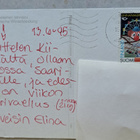 13.6.-95
ttelen Kii-
ältä, ollaan
ossa saari-
lle, ja edes-
on viikon
rivaellus
voisin Elina.